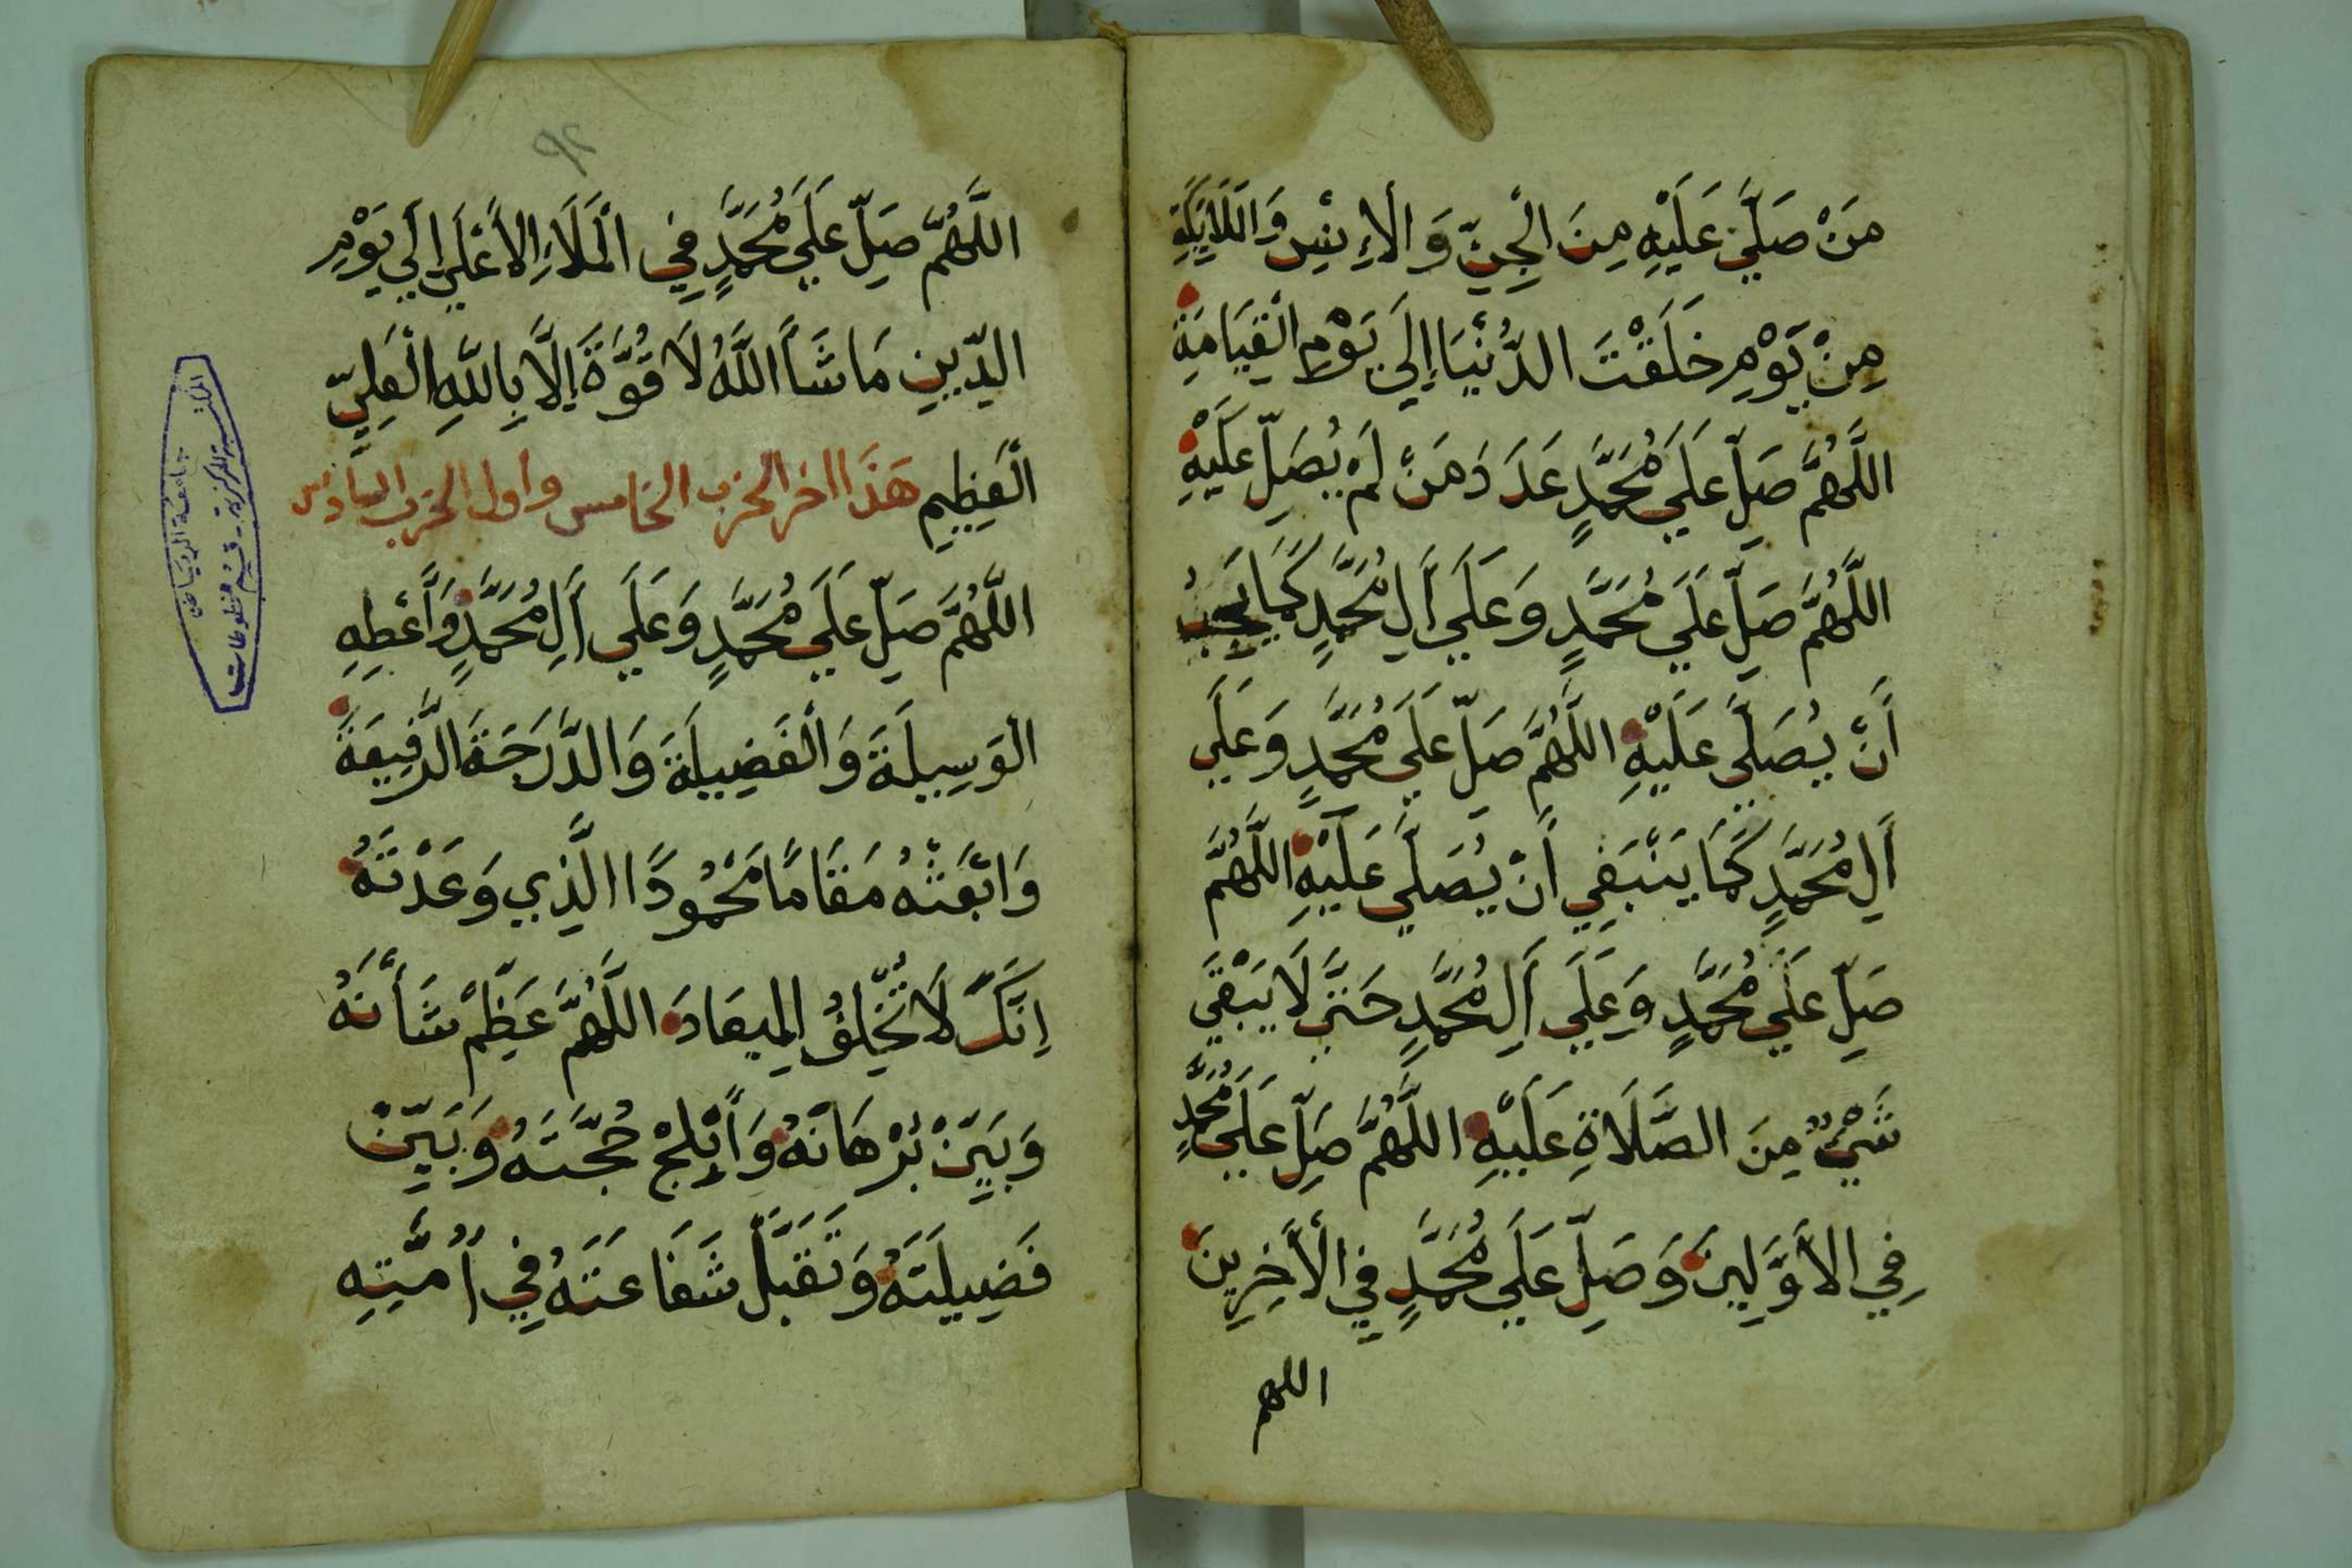 مَنْ صَلَّي عَلَيْهِ مِنَ الْجِنِّ وَ الْإِنْسِ وَالْمَلَايِكَةِ
مِنْ يَوْمِ خَلَقْتَ الدُّنْيَا إِلَي يَوْمِ الْقِيَامَةِ
اللَّهُمَّ صَلِّ عَلَي مُحَمَّدٍ عَدَدَ مَنْ لَمْ يُصَلِّ عَلَيْهِ
اللَّهُمَّ صَلِّ عَلَي مُحَمَّدٍ وَعَلَي أَلِ مُحَمَّدٍ كَمَا يَجِبُ
أَنْ يُصَلَّي عَلَيْهِ اللَّهُمَّ صَلِّ عَلَي مُحَمَّدٍ وَعَلَي
أَلِ مُحَمَّدٍ كَمَا يَنْبَغِي أَنْ يُصَلَّي عَلَيْهِ اللَّهُمَّ
صَلِّ عَلَي مُحَمَّدٍ وَعَلَي أَلِ مُحَمَّدٍ حَتَّي لَا يَبْقَي
شَيْءٌ مِنَ الصَّلَاةِ عَلَيْهِ اللَّهُمَّ صَلِّ عَلَي مُحَمَّدٍ
فِي الْأَوَّلِينَ وَصَلِّ عَلَي مُحَمَّدٍ فِي الْأَخِرِينَ
اللهم
٩٢
اللَّهُمَّ صَلِّ عَلَي مُحَمَّدٍ فِي الْمَلَاءِ الْأَعْلَي إِلَي يَوْمِ
الدِّينِ مَا شَأَ اللَّهُ لَا قُوَّةَ إِلَّا بِاللَّهِ الْعَلِيِّ
الْعَظِيمِ هَذَا اخر الحزب الخامس واول الحزب السادس
اللَّهُمَّ صَلِّ عَلَي مُحَمَّدٍ وَعَلَي أَلِ مُحَمَّدٍ وَأَعْطِهِ
الْوَسِيلَةَ وَالْفَضِيلَةَ وَالدَّرَجَةَ الرَّفِيعَةَ
وَابْعَثْهُ مَقَامًا مَحْمُودًا الَّذِي وَعَدْتَهُ
اِنَّكَ لَا تُخْلِفُ الْمِيعَادَ اللَّهُمَّ عَظِّمْ شَأْنَهُ
وَبَيِّنْ بُرْهَانَهُ وَأَبْلِجْ حُجَّتَهُ وَبَيِّنْ
فَضِيلَتَهُ وَتَقَبَّلْ شَفَاعَتَهُ فِي أُمَّتِهِ
جامعة الرياض
المكتبة المركزية - قسم مخطوطات